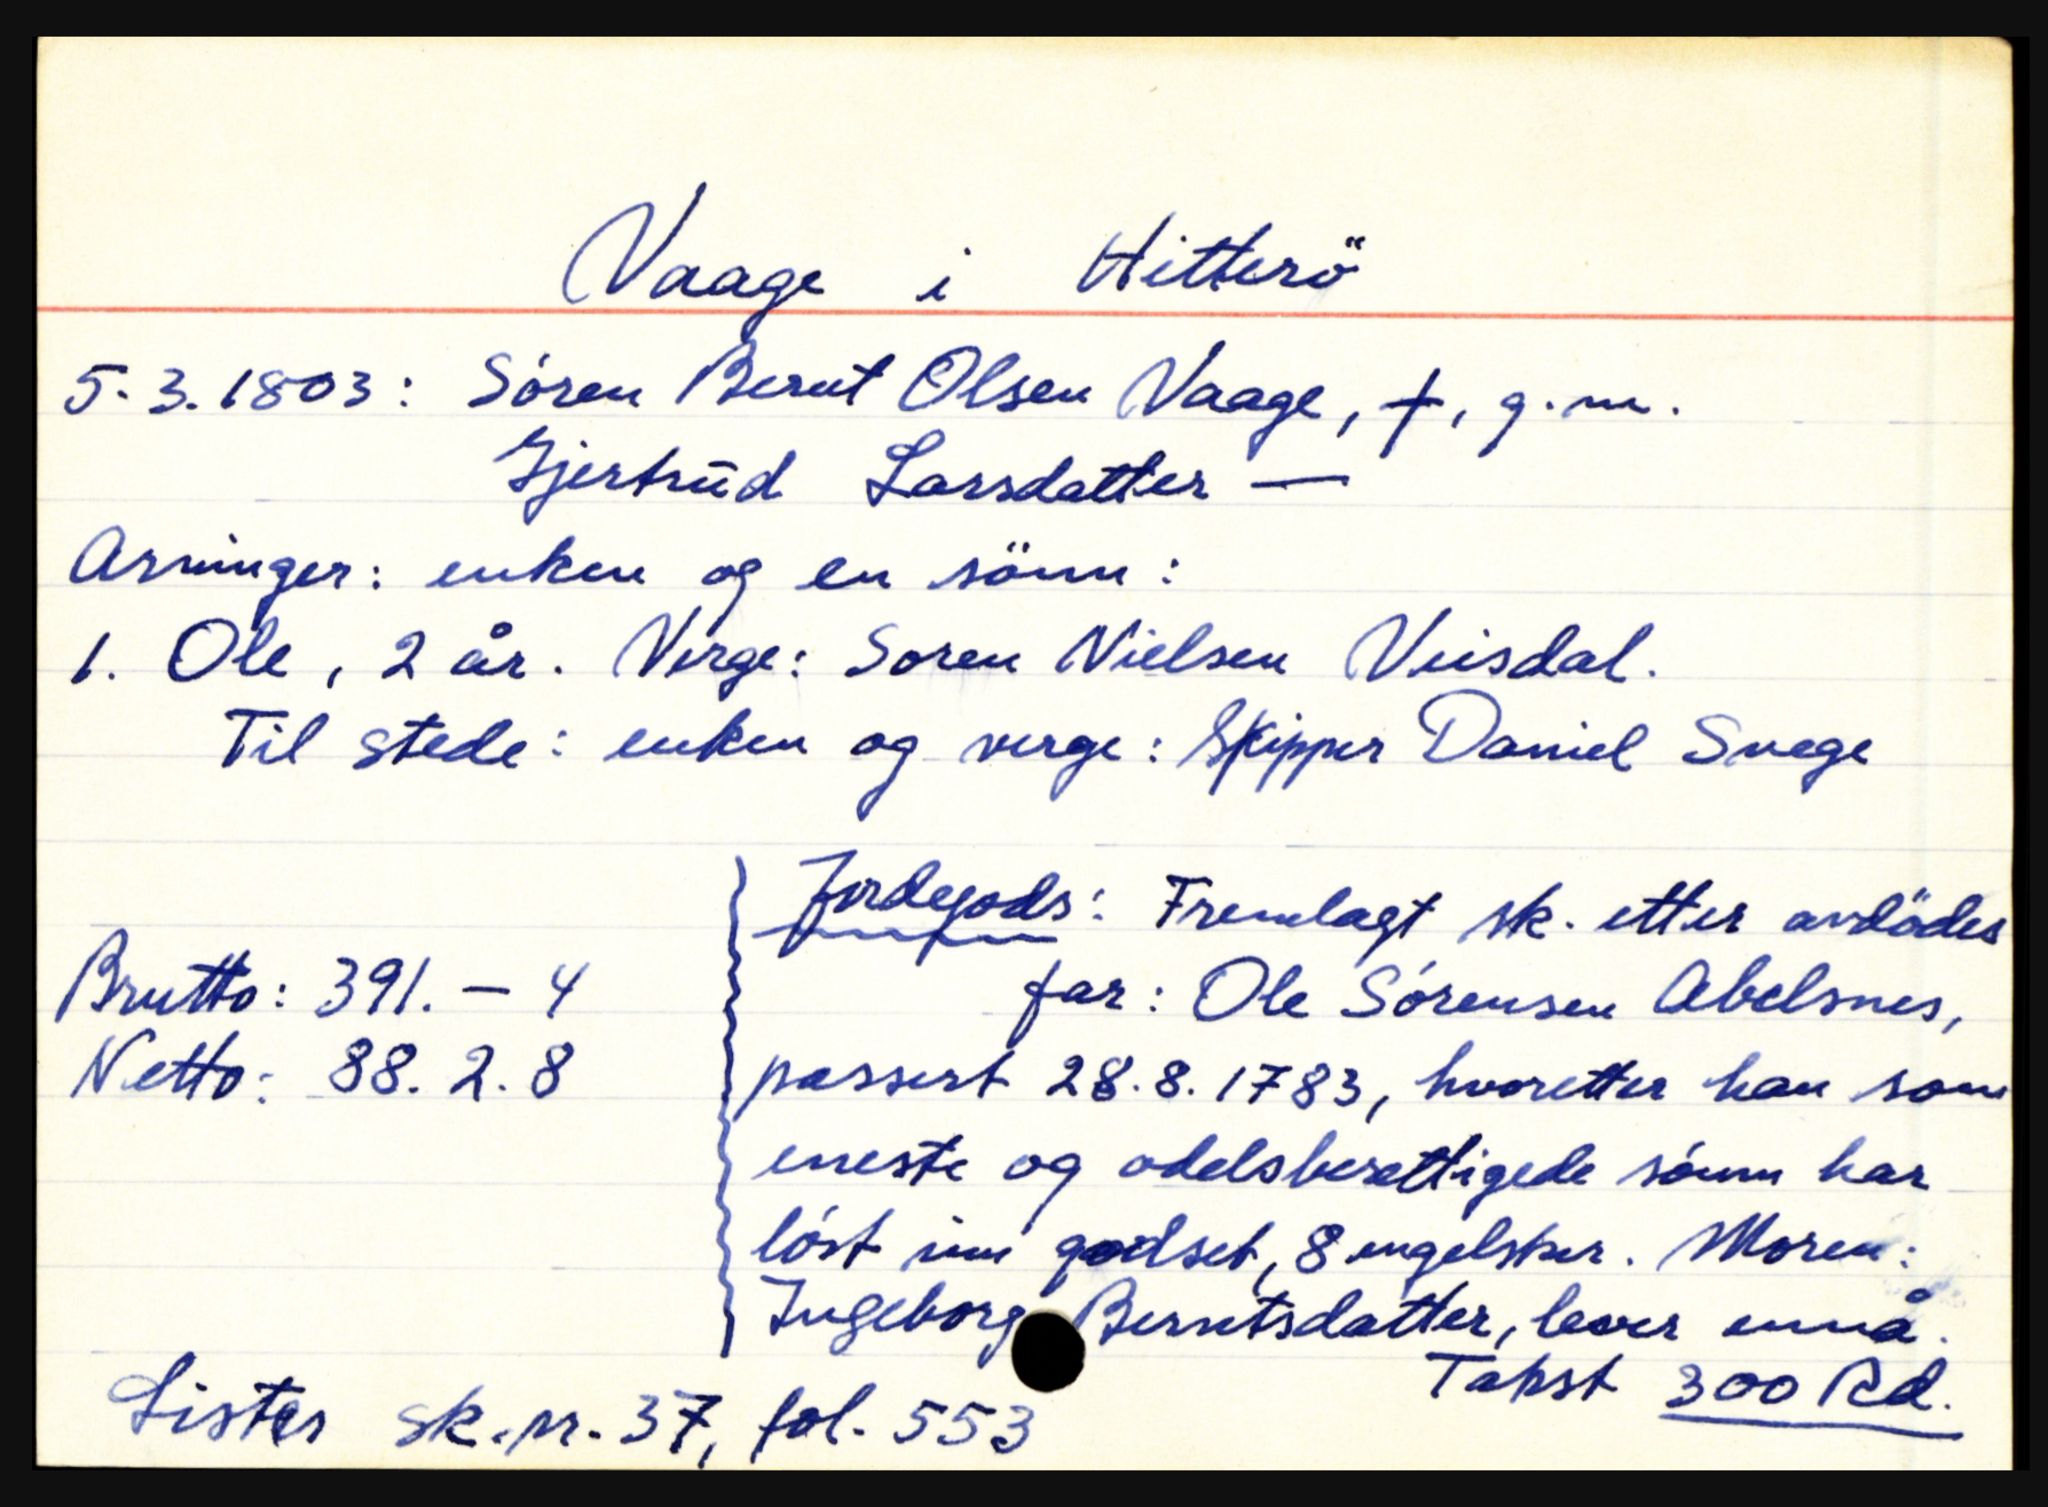 Vaage i Hitterö
5.3.1803: Sören Bernt Olsen Vaage, †, g.m.
Gjertrud Larsdatter —
Arvinger: enken og en sönn:
1. Ole, 2 år. Verge: Soren Nielsen Veisdal.
Til stede: enken og verge: Skipper Daniel Svege
Brutto: 391. – 4
Netto: 88. 2. 8
Jordegods: Fremlagt sk. etter avdödes
far: Ole Sörensen Abelsnes,
passert 28.8.1783, hvoretter han som
eneste og odelsberettigede sönn har
löst inn godset, 8 engelsker. Moren:
Ingeborg Berntsdatter, lever ennå.
Takst 300 Rd.
Lister sk.pr. 37, fol. 553